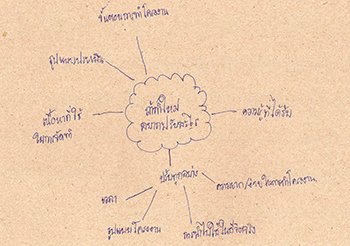 ขั้นตอนการทำโครงงาน
รูปแบบประเมิน
เนื้อหาที่ใช้
ในการจัดทำ
ความรู้ที่ได้รับ
ปรับทุกอย่าง
ความยาก/ง่ายในการทำโครงงาน
เวลา
รูปแบบโครงงาน
การนำไปใช้ในชีวิตจริง